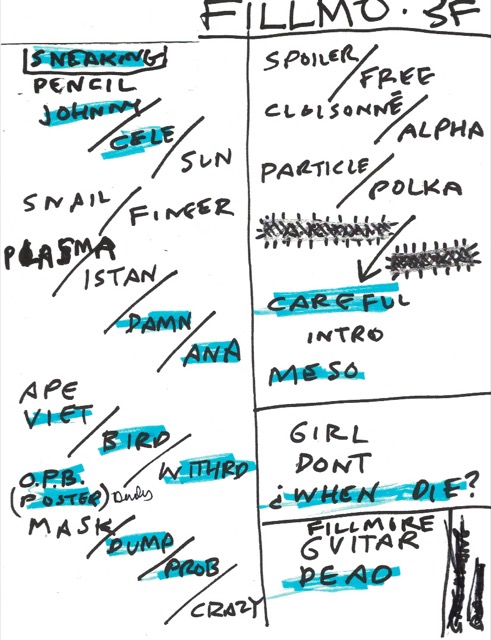 FILLMO. SF
SNEAKING
PENCIL
JOHNNY
CELE
SUN
SNAIL
FINGER
PLASMA
ISTAN
DAMN
ANA
APE
VIET
BIRD
WITHRD
O.P.B.
(POSTER)
MASK
DUMP
PROB
CRAZY
SPOILER
FREE
CLOISONNĒ
ALPHA
PARTICLE
POLKA
CAREFUL
INTRO
MESO
GIRL
DONT
¿WHEN DIE?
FILLMORE
GUITAR
DEAD